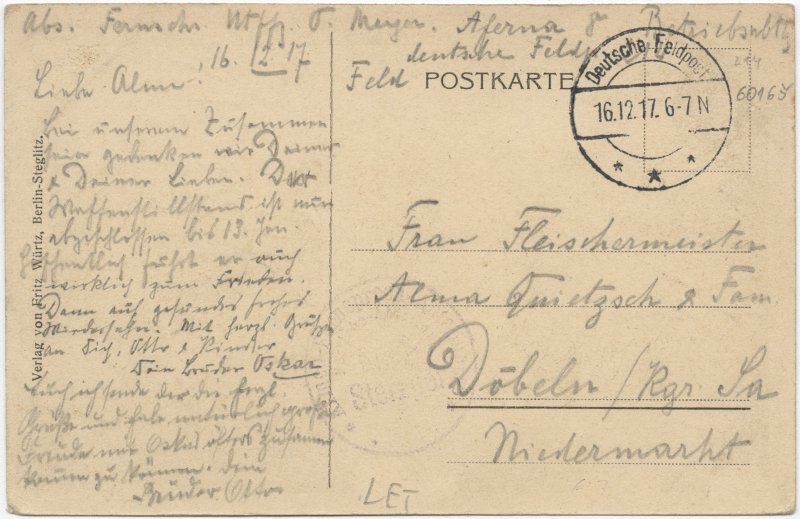 Abs. Fernspr. Utffz O. Meyer. Aferna 8 Betriebsabtlg
deutsche Feldpost
16. 12. 17
Feld
POSTKARTE
Deutsche Feldpost
16.12.17. 6-7 N
* * *
214
60165
Liebe Alma!
Bei unserem Zusammen
sein gedenken wir Deiner
& Deiner Lieben. Der
Waffenstillstand ist nun
abgeschlossen bis 13. Jan.
Hoffentlich führt er auch
wirklich zum Frieden.
Dann auf gesundes frohes
Wiedersehn. Mit herzl. Grüßen
an Dich, Otto & Kinder
Dein Bruder Oskar
Auch ich sende dir die herzl.
Grüße und habe natürlich große
Freude mit Oskar öfters zusammen
kommen zu können. Dein
Bruder Otto
Verlag von Fritz Würtz, Berlin-Steglitz.
Frau Fleischermeister
Alma Quietzsch & Fam.
Döbeln / Kgr. Sa
Niedermarkt
LET